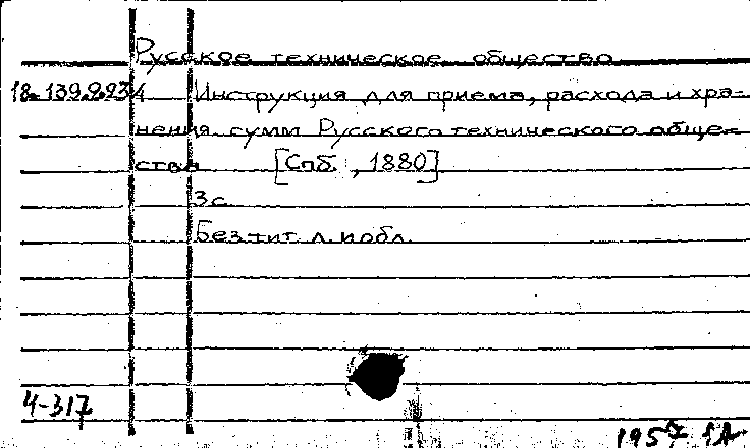 Русское техническое общество
18.139.9.234 Инструкция для приема, расхода и хра-
нения сумм Русского технического обще-
ства [Спб., 1880]
3 с.
Без тит. л. и обл.
4-317